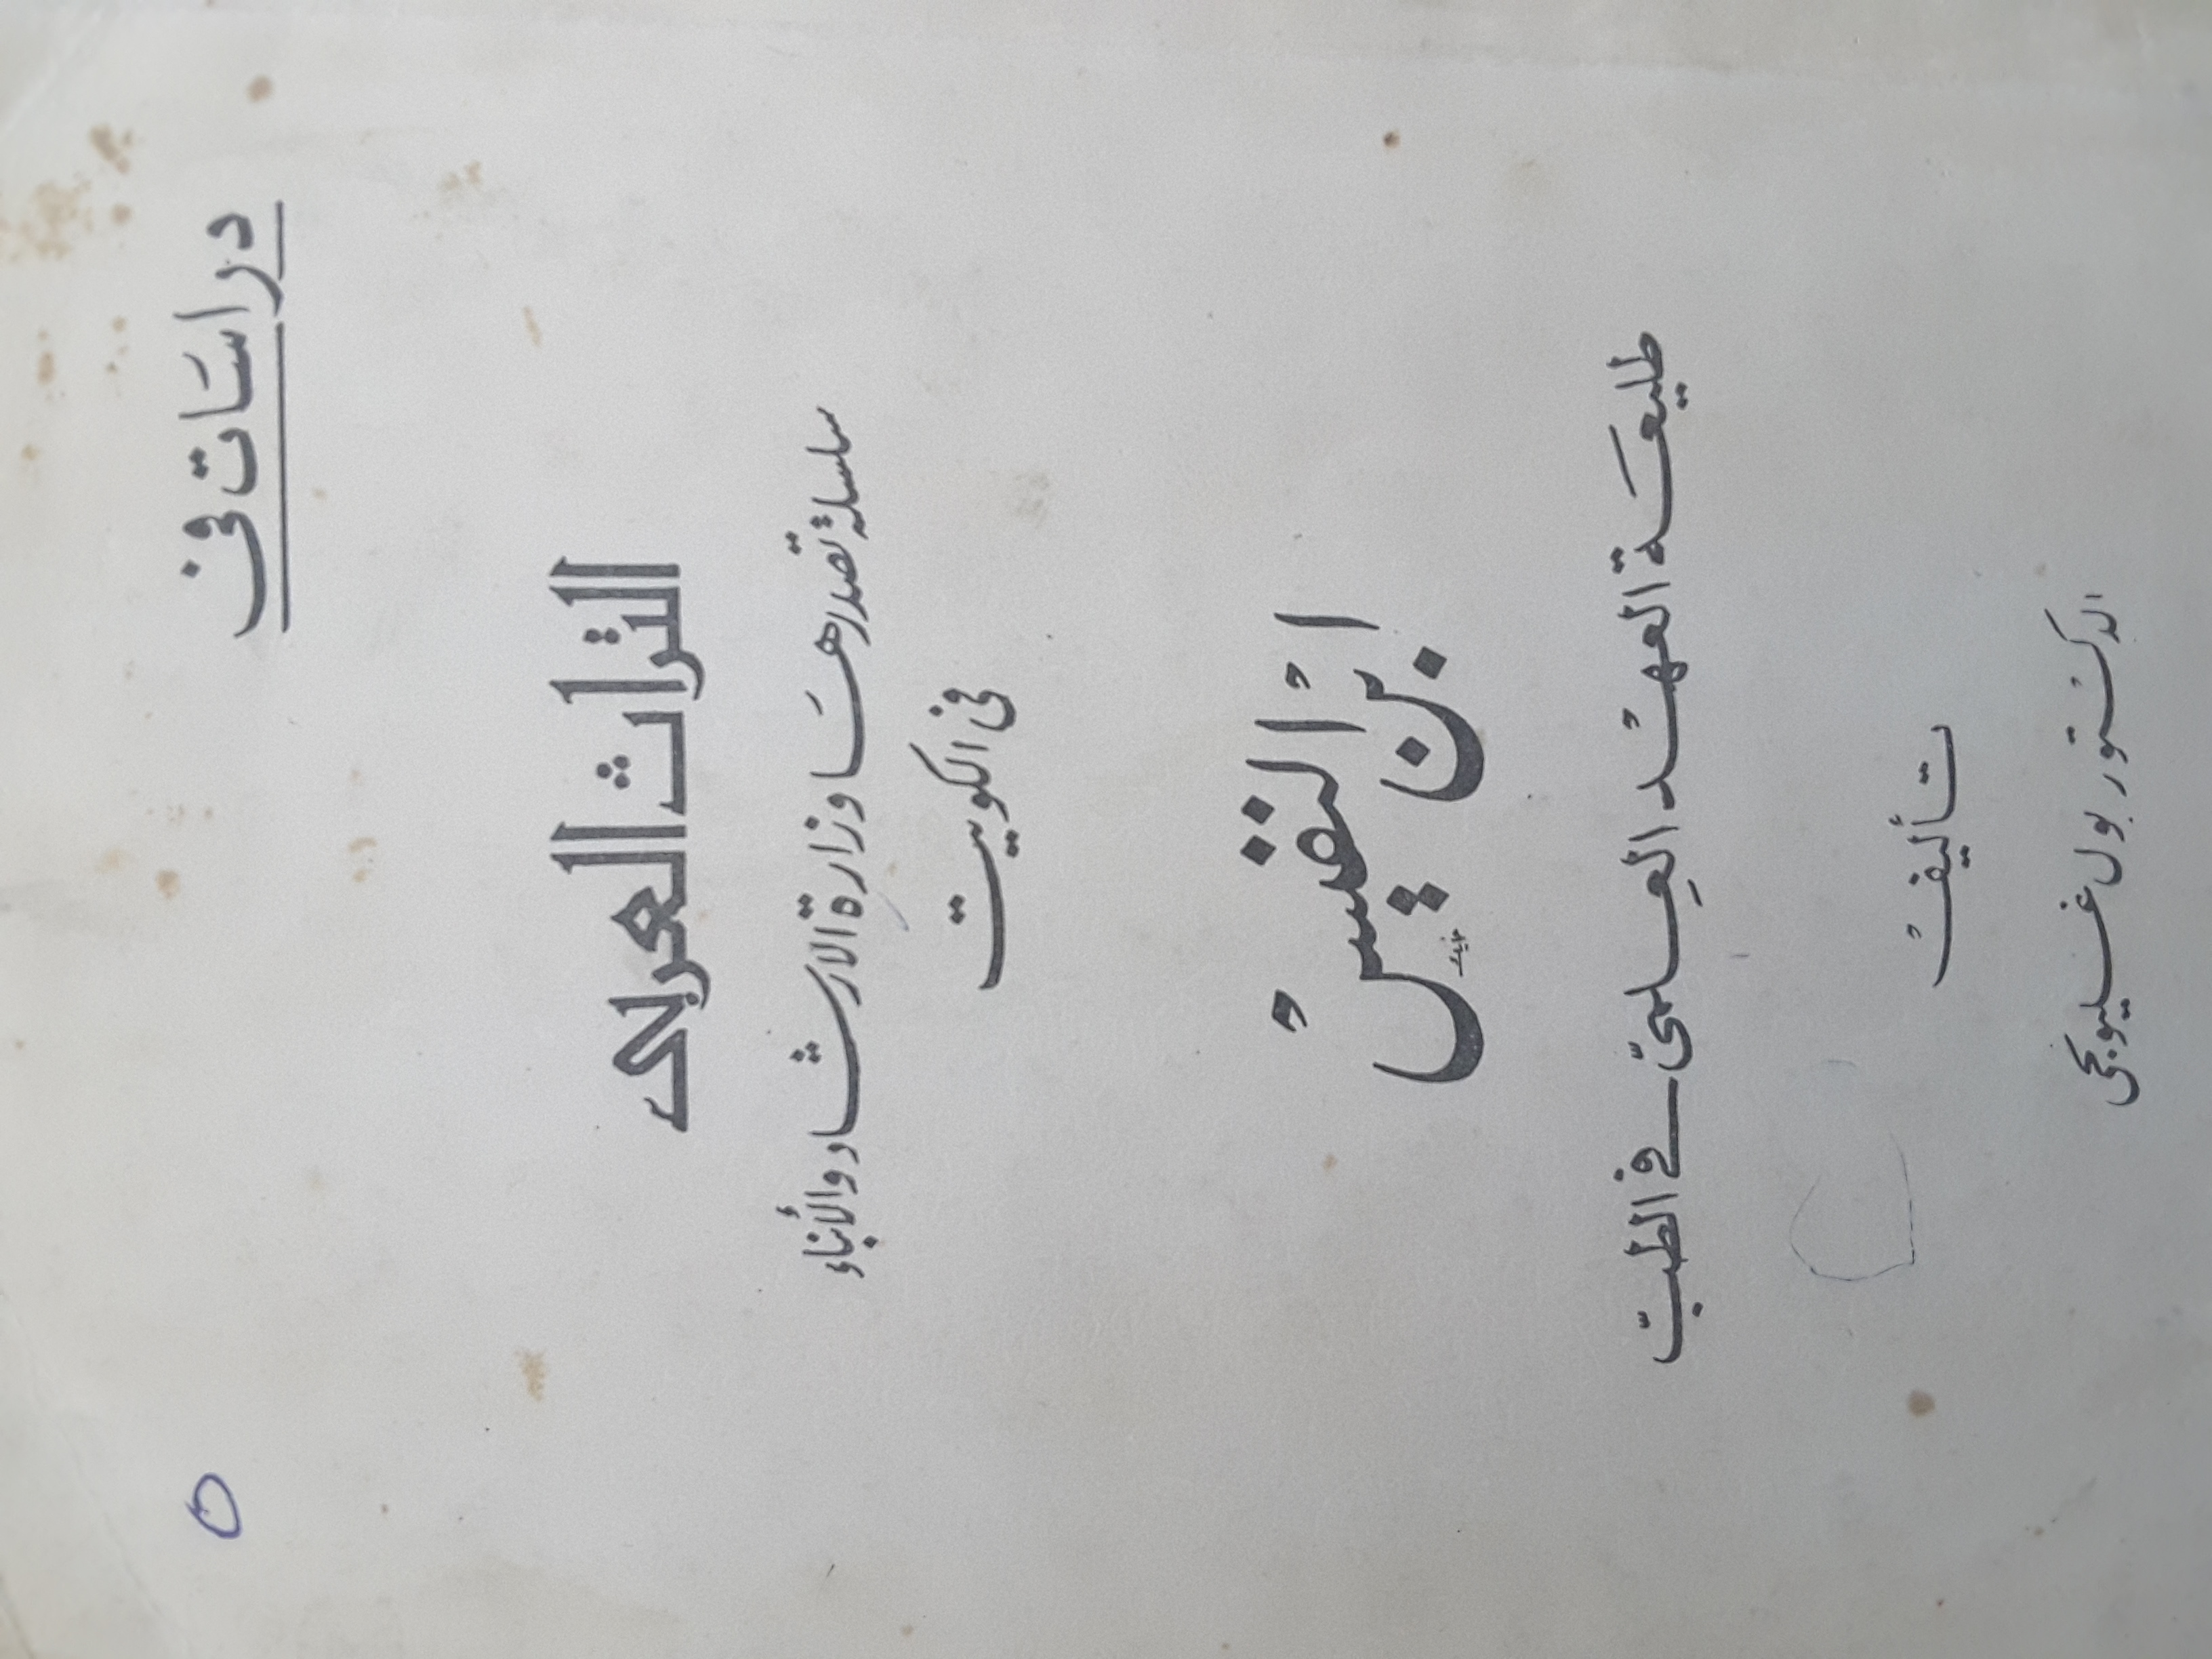 دراسات في
٥
التراث العربي
سلسلة تصدرها وزارة الارشاد والأنباء
في الكويت
ابن النفيس
طليعة العهد العلمي في الطب
تأليف
الدكتور بول غليونجي